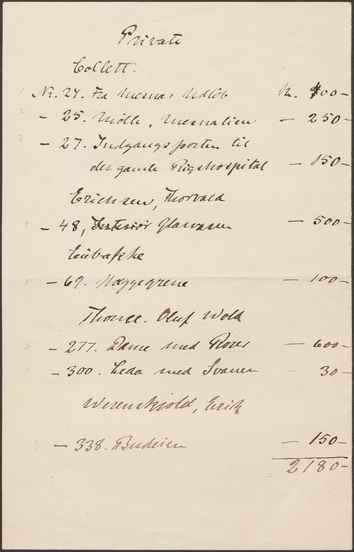 Private
Collett.
Nr. 24. Fra Mesnas Udløb Kr. 400-
- 25. Mølle, Mesnalien - 250-
- 27. Indgangsporten til
det gamle Rigshospital - 150-
Erichsen, Thorvald
- 48, Interiør Glassveien - 500-
Eiebakke
- 69. Hæggegrene - 100-
Thomee. Oluf Wold
- 277. Dame med Roser - 600-
- 300. Leda med Svanen - 30-
Werenskiold, Erik
- 338. Budeien - 150-
2180-